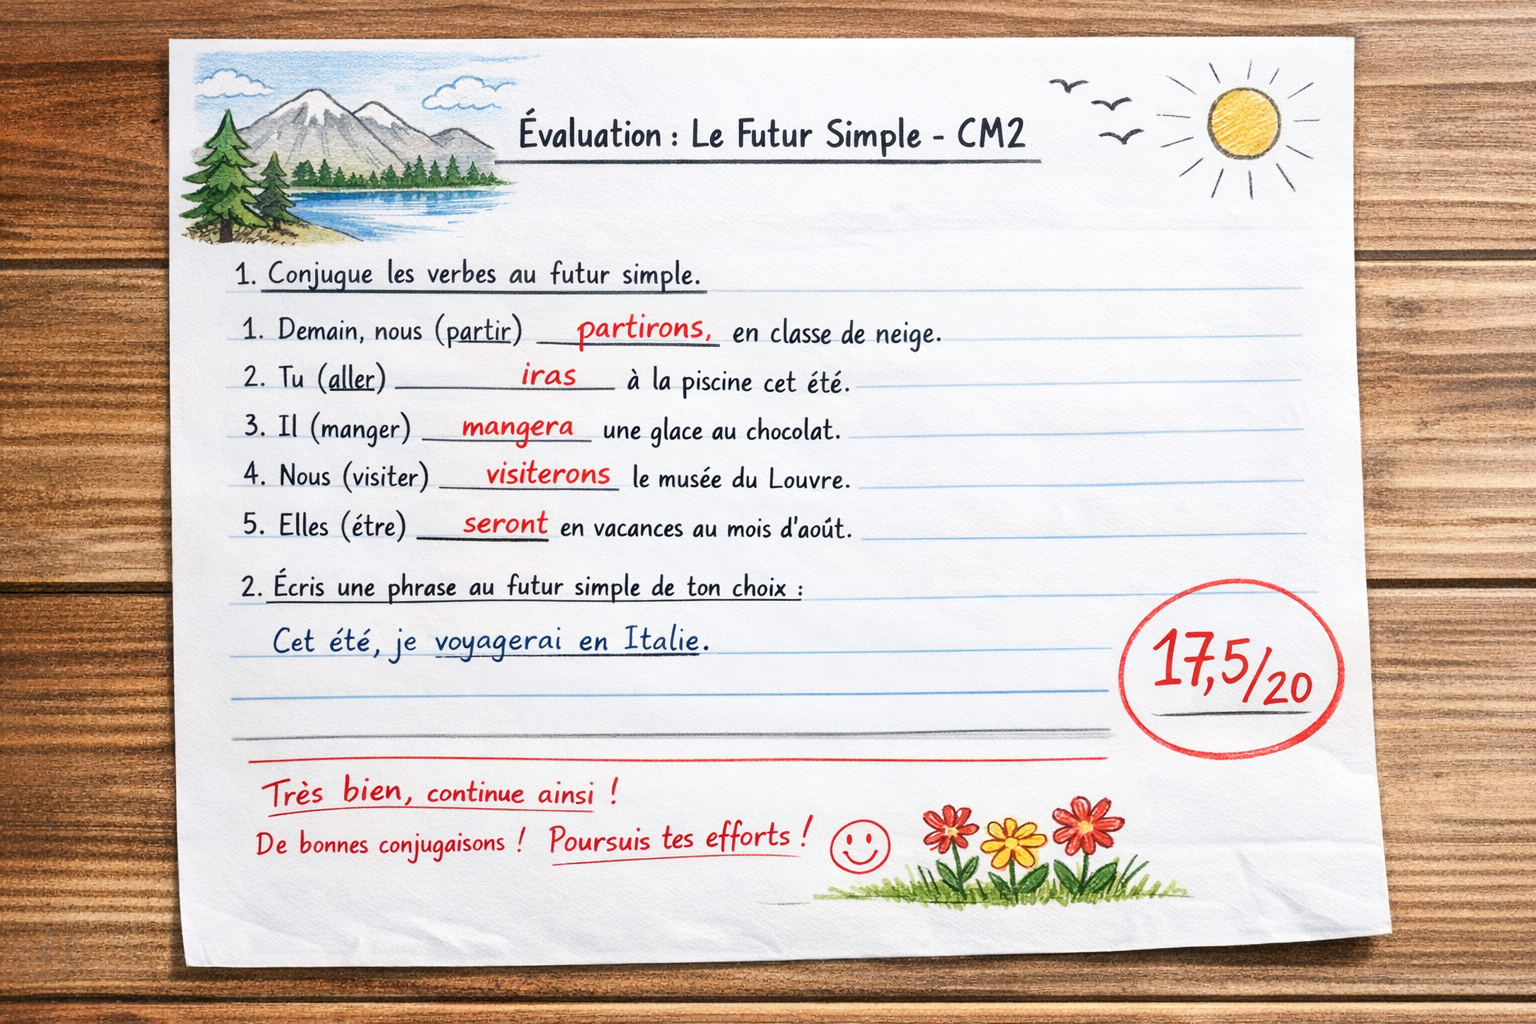 Évaluation : Le Futur Simple - CM2
1. Conjugue les verbes au futur simple.
1. Demain, nous (partir) partirons, en classe de neige.
2. Tu (aller) iras à la piscine cet été.
3. Il (manger) mangera une glace au chocolat.
4. Nous (visiter) visiterons le musée du Louvre.
5. Elles (étre) seront en vacances au mois d'août.
2. Écris une phrase au futur simple de ton choix :
Cet été, je voyagerai en Italie.
17,5/20
Très bien, continue ainsi !
De bonnes conjugaisons ! Poursuis tes efforts !